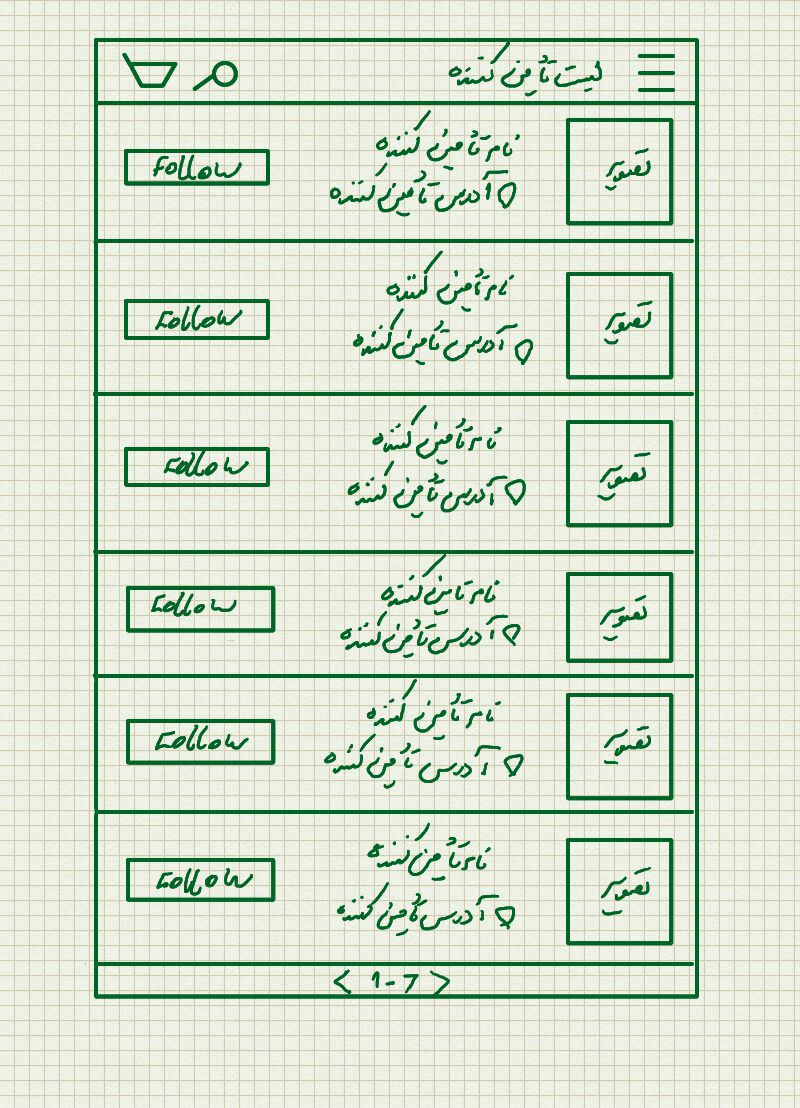 لیست تأمین کننده
تصویر
نام تأمین کننده
آدرس تأمین کننده
Follow
تصویر
نام تأمین کننده
آدرس تأمین کننده
Follow
تصویر
نام تأمین کننده
آدرس تأمین کننده
Follow
تصویر
نام تامین کننده
آدرس تأمین کننده
Follow
تصویر
نام تأمین کننده
آدرس تأمین کننده
Follow
تصویر
نام تأمین کننده
آدرس تأمین کننده
Follow
< 1-7 >